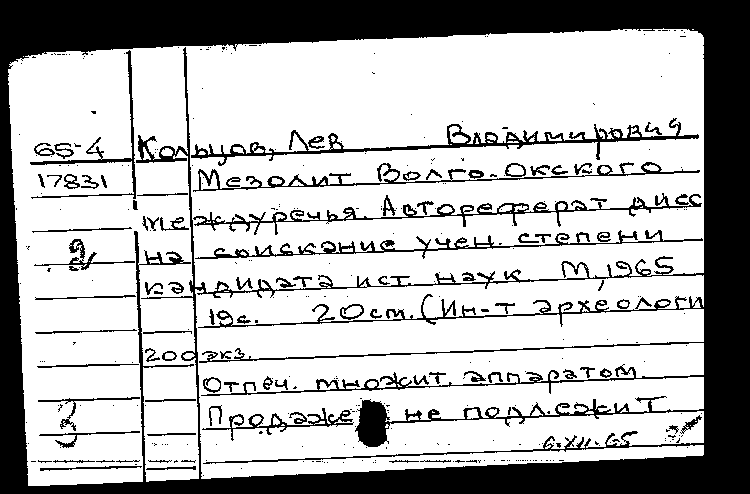 65-4 Кольцов, Лев Владимирович
17831 Мезолит Волго-Окского
междуречья. Автореферат дисс
2 на соискание учен. степени
кандидата ист. наук М, 1965
19с. 20 см. (Ин-т археологи
200 экз.
Отпеч. множит. аппаратом.
3 Продаже не подлежит
6.XII.65